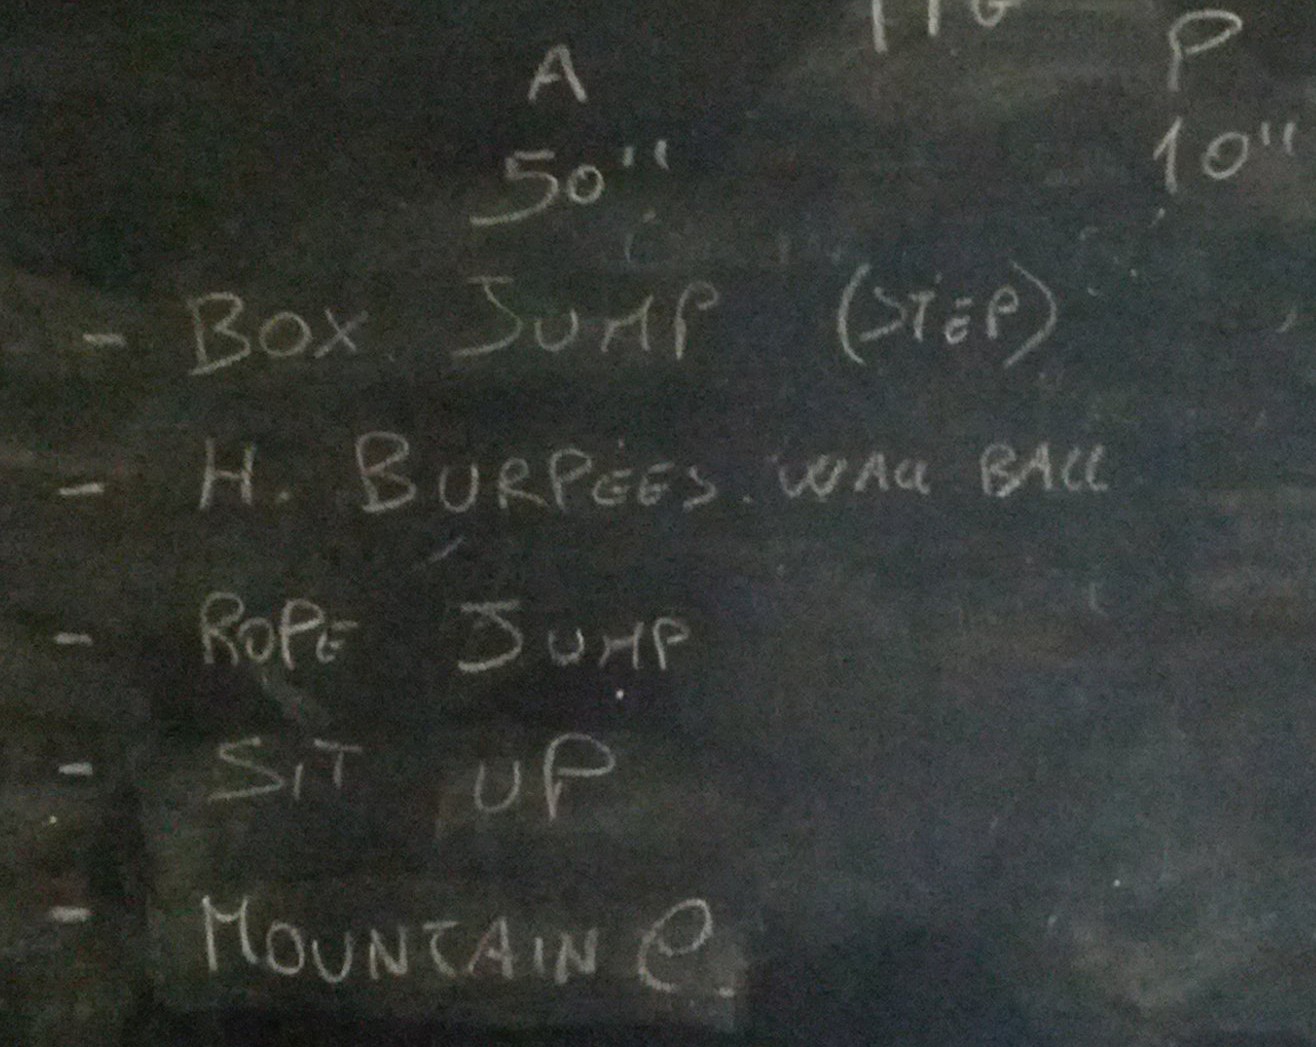 A P
50" 10"
- BOX JUMP (STEP)
- H. BURPEES. WALL BALL
- ROPE JUMP
- SIT UP
- MOUNTAIN C.